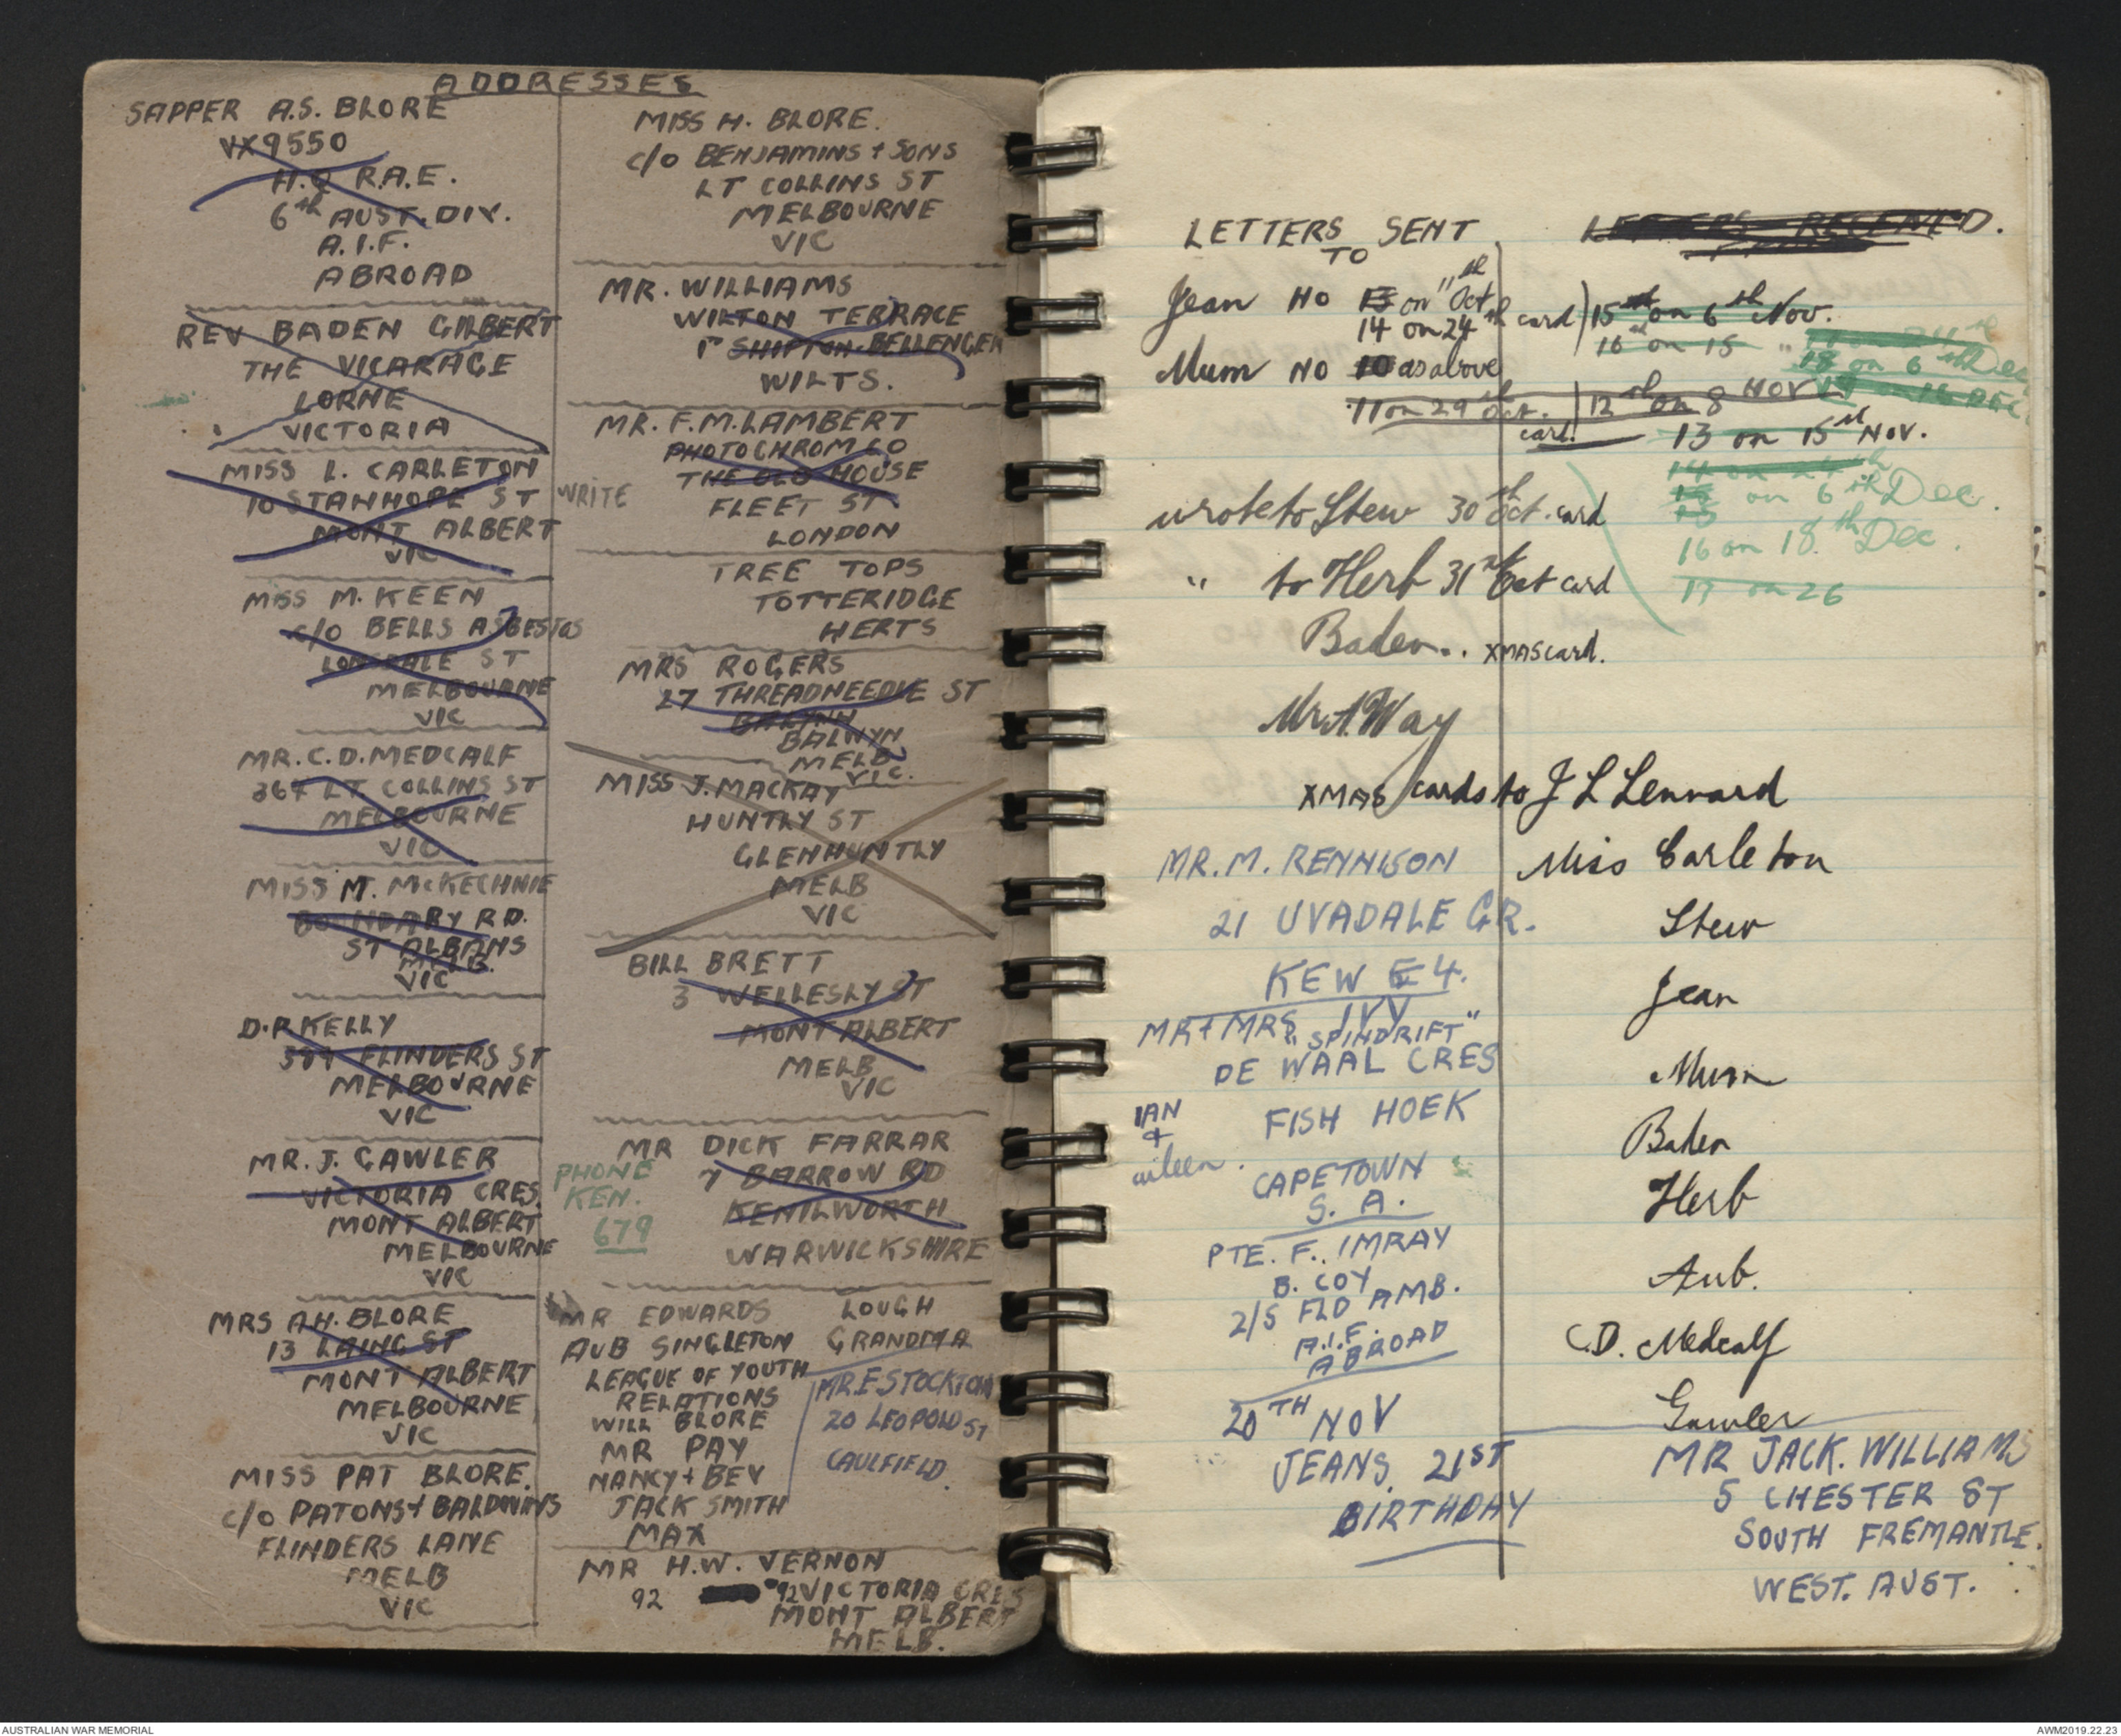 ADDRESSES
SAPPER A.S. BLORE
VX9550
H.Q R.A.E.
6th AUST. DIV.
A.I.F.
ABROAD
REV BADEN GILBERT
THE VICARAGE
LORNE
VICTORIA
MISS L. CARLETON
10 STANHOPE ST
MONT ALBERT
VIC
MISS M. KEEN
c/o BELLS ASBESTOS
LONSDALE ST
MELBOURNE
VIC
MR. C.D. MEDCALF
367 LT COLLINS ST
MELBOURNE
VIC
MISS M. McKECHNIE
BOUNDARY RD.
ST ALBANS
MELB.
VIC
D.R KELLY
FLINDERS ST
MELBOURNE
VIC
MR. J. GAWLER
VICTORIA CRES.
MONT ALBERT
MELBOURNE
VIC
MRS A.H. BLORE
13 LAING ST
MONT ALBERT
MELBOURNE
VIC
MISS PAT BLORE.
c/o PATONS + BALDWINS
FLINDERS LANE
MELB
VIC
MISS H. BLORE.
c/o BENJAMINS + SONS
LT COLLINS ST
MELBOURNE
VIC
MR. WILLIAMS
WILTON TERRACE
SHIPTON-BELLENGER
WILTS.
MR. F.M. LAMBERT
PHOTOCHROM CO
THE OLD HOUSE
WRITE
FLEET ST
LONDON
TREE TOPS
TOTTERIDGE
HERTS
MRS ROGERS
27 THREADNEEDLE ST
BALWYN
MELB
VIC.
MISS J. MACKAY
HUNTLY ST
GLENHUNTLY
MELB
VIC
BILL BRETT
3 WELLESLY ST
MONT ALBERT
MELB
VIC
MR DICK FARRAR
7 BARROW RD
KENILWORTH
WARWICKSHIRE
PHONE
KEN.
679
MR EDWARDS
AUB SINGLETON
LEAGUE OF YOUTH
RELATIONS
WILL BLORE
MR PAY
NANCY + BEV
JACK SMITH
MAX
LOUGH
GRANDMA
MR. E STOCKTON
20 LEOPOLD ST
CAULFIELD
MR H.W. VERNON
92 92 VICTORIA CRES
MONT ALBERT
MELB.
LETTERS SENT
TO
LETTERS RECEIVED.
Jean NO 13 on 11th Oct
14 on 24th card
15th on 6th Nov.
16 on 15th "
18 on 6th Dec
Mum NO 10 as above
11 on 29th Oct. card.
12th on 8 NOV
13 on 15th NOV.
14 on 24th
15 on 6th Dec.
16 on 18th Dec.
17 on 26
wrote to Stew 30th Oct. card
" to Herb 31st Oct card
Baden.. XMAS card.
Mr A Way
XMAS cards to J L Lennard
Miss Carleton
Stew
Jean
Mum
Baden
Herb
Aub.
C.D. Medcalf
Gawler
MR. M. RENNISON
21 UVADALE GR.
KEW E4.
MR + MRS IVY
"SPINDRIFT"
DE WAAL CRES
FISH HOEK
CAPETOWN
S. A.
IAN
+
aileen.
PTE. F. IMRAY
B. COY
2/5 FLD AMB.
A.I.F.
ABROAD
20TH NOV
JEANS 21ST
BIRTHDAY
MR JACK. WILLIAMS
5 CHESTER ST
SOUTH FREMANTLE.
WEST. AUST.
AUSTRALIAN WAR MEMORIAL
AWM2019.22.23